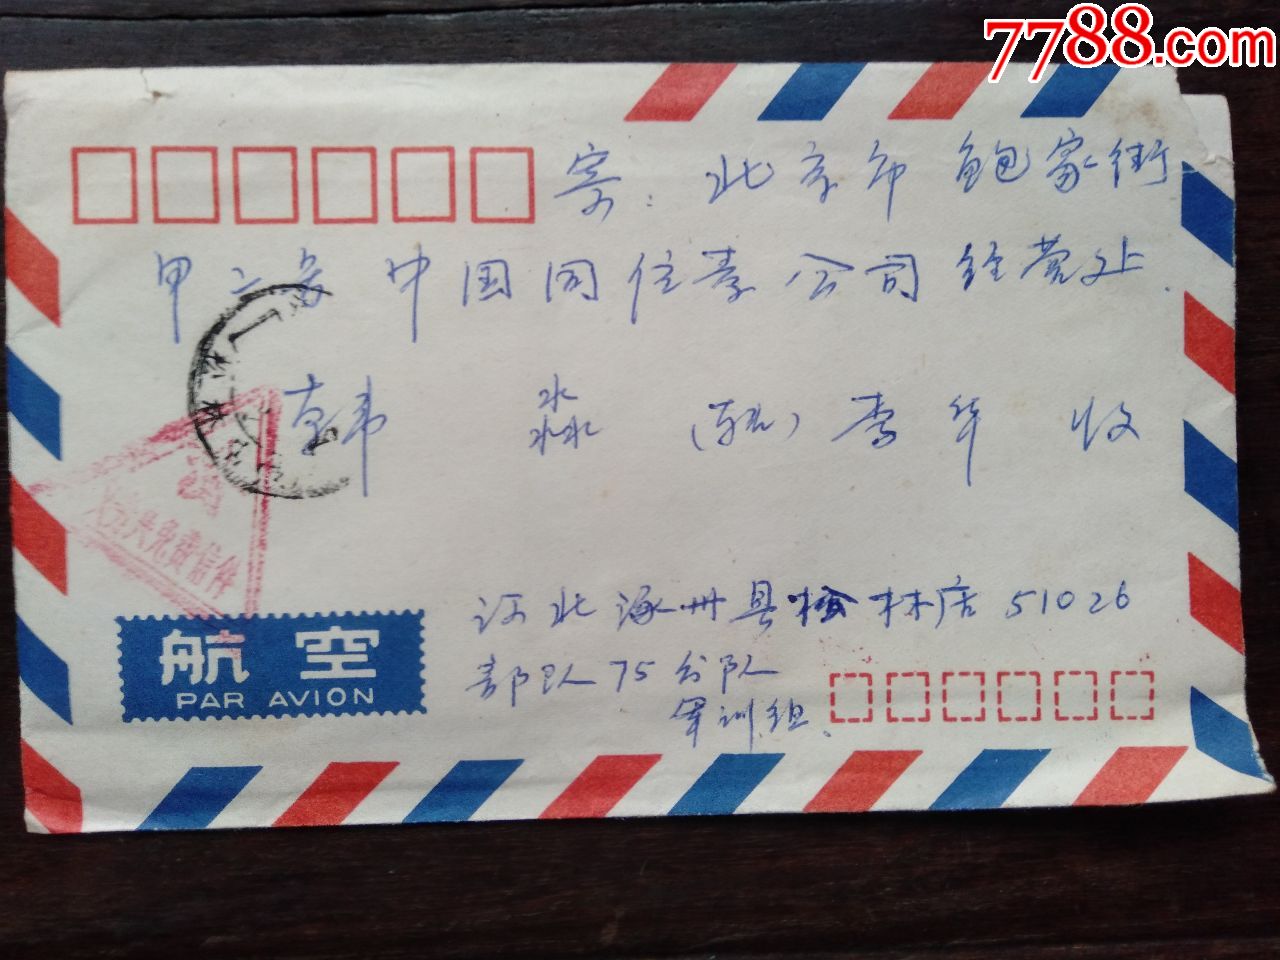 7788.com
寄: 北京市 鲍家街
甲二号 中国同位素公司经营处.
韩 淼 (转) 李华 收
义务兵免费信件
航空
PAR AVION
河北涿州县松林店51026
部队75分队
军训组.